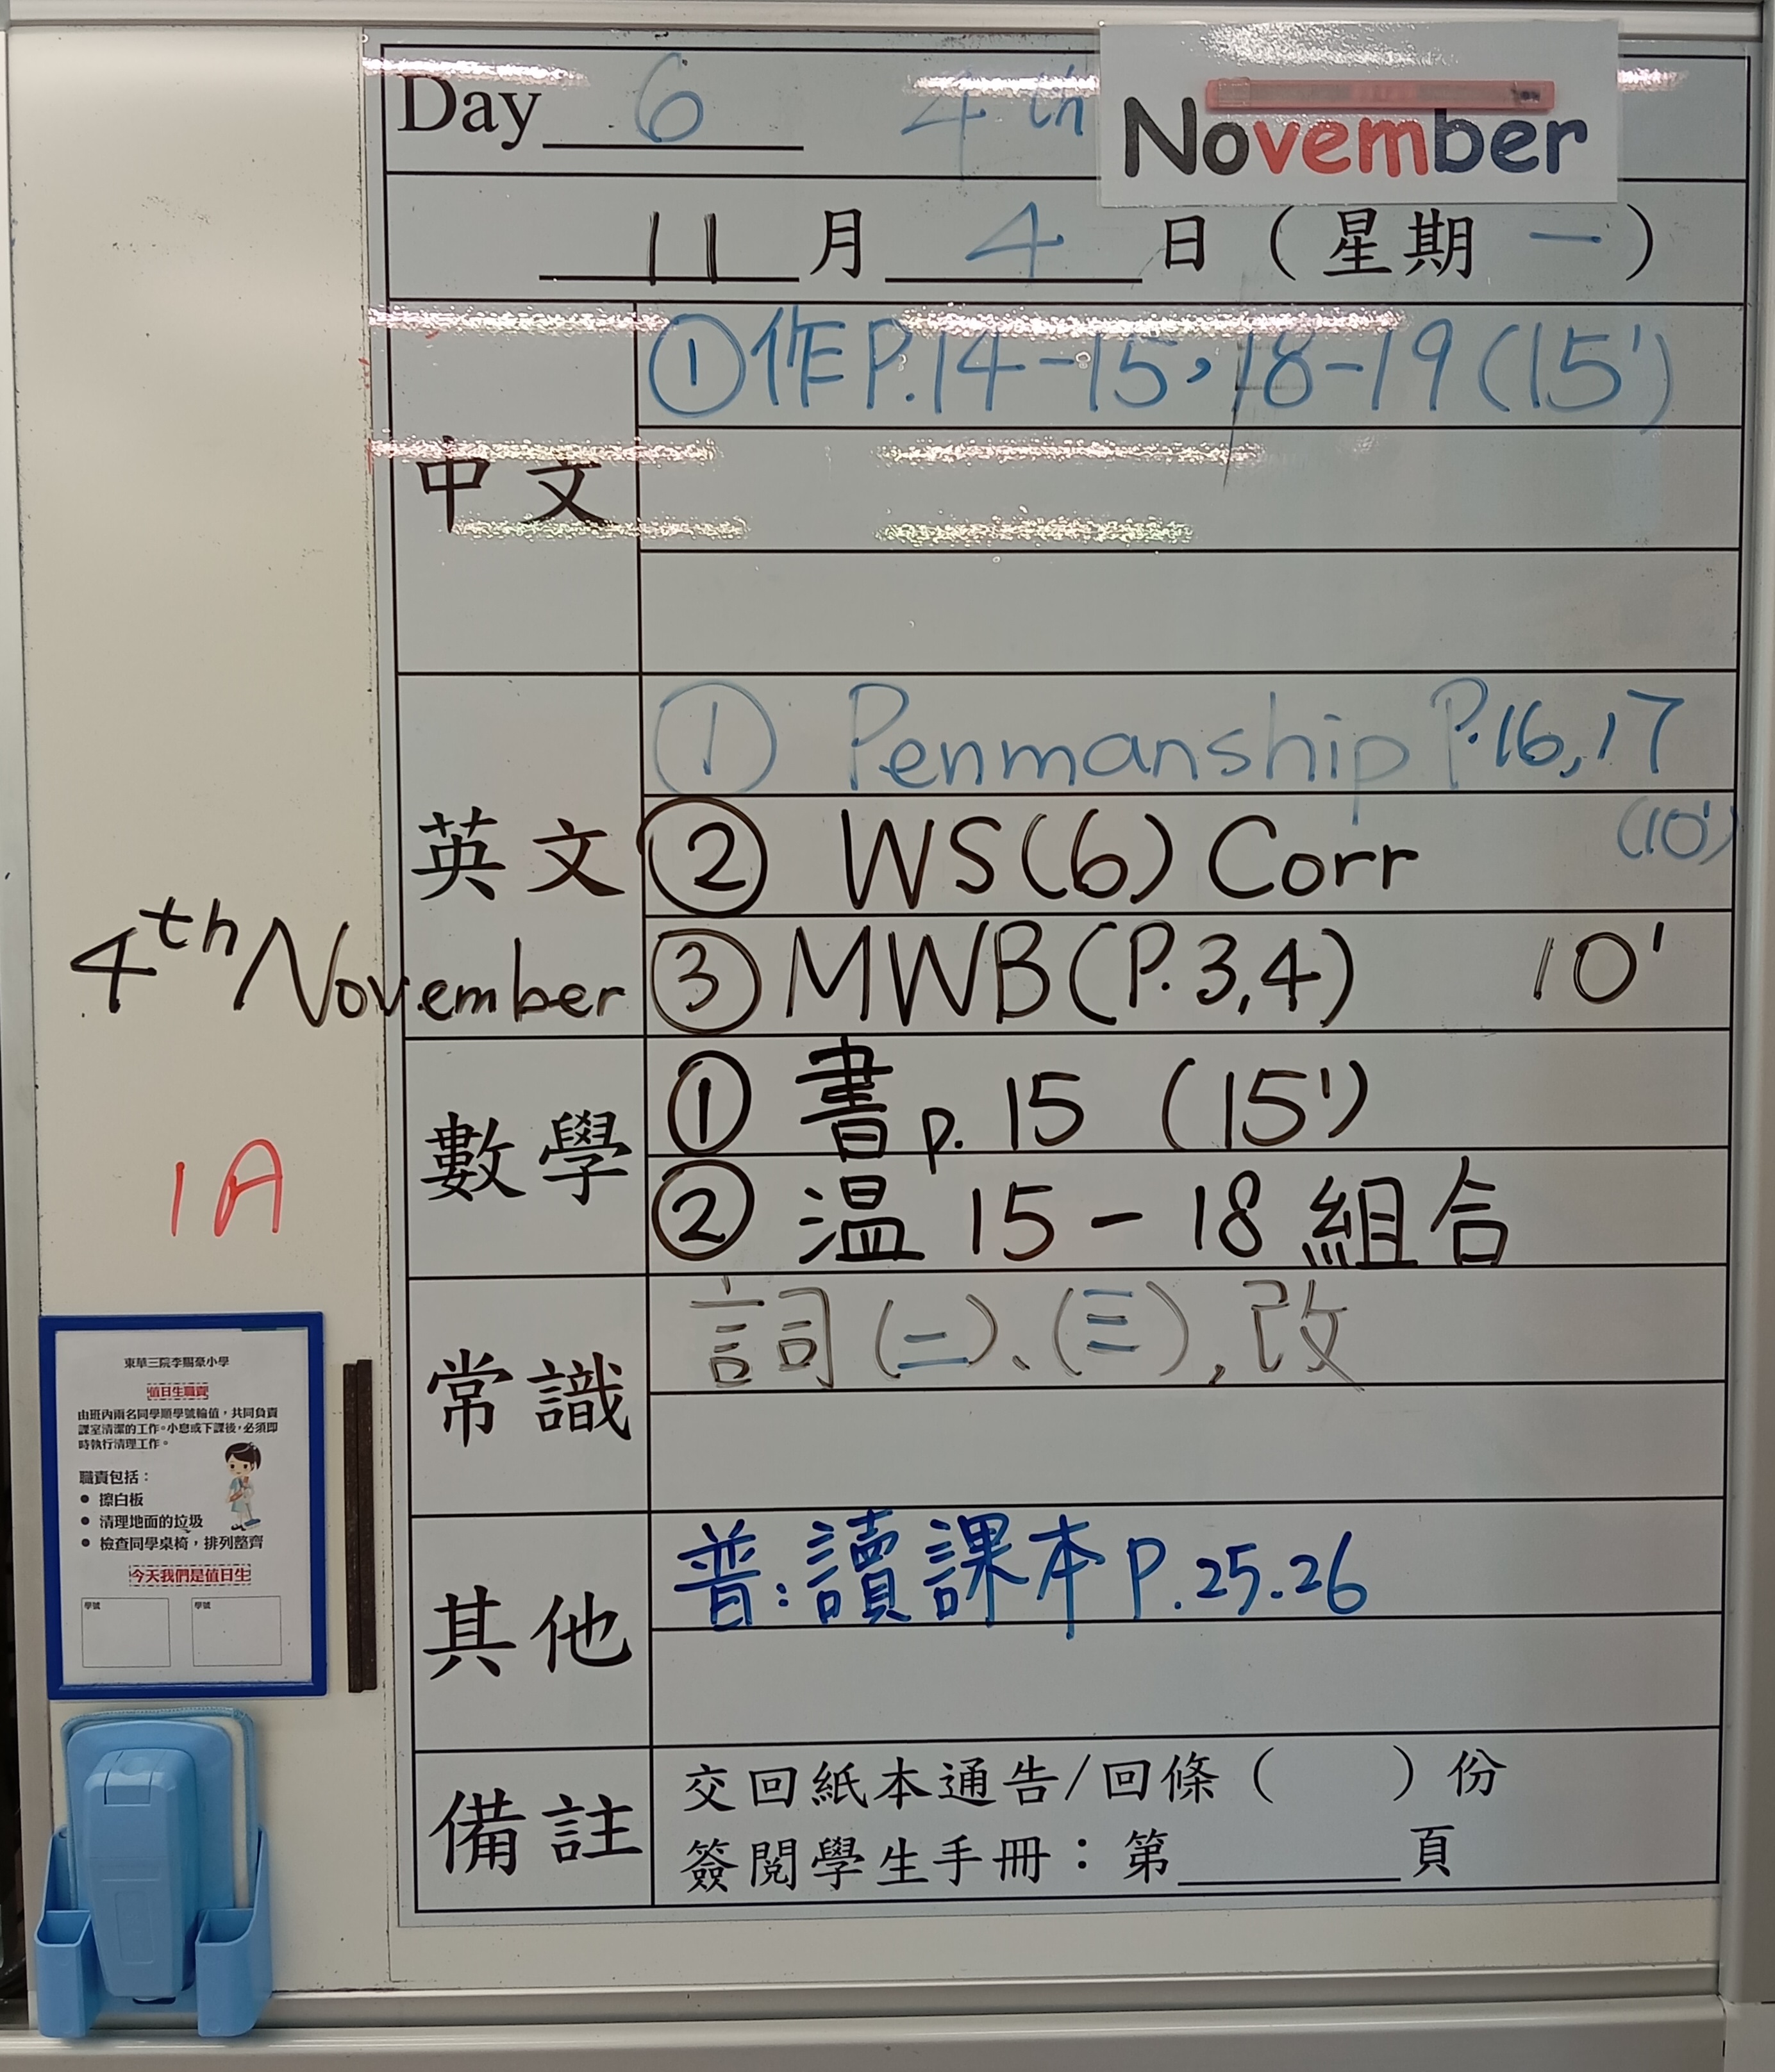 Day 6 4th November
11月 4 日（星期 一）
中文
①作P.14-15，18-19(15')
英文
① Penmanship P.16,17
(10')
② WS(6) Corr
③ MWB(P.3,4) 10'
數學
① 書 p. 15 (15')
② 温 15-18 組合
常識
詞(二)、(三),改
其他
普:讀課本P.25.26
備註
交回紙本通告/回條（ ）份
簽閱學生手冊：第______頁
4th November
1A
東華三院李賜豪小學
值日生職責
由班內兩名同學順學號輪值，共同負責
課室清潔的工作。小息或下課後，必須即
時執行清理工作。
職責包括：
• 擦白板
• 清理地面的垃圾
• 檢查同學桌椅，排列整齊
今天我們是值日生
學號 學號